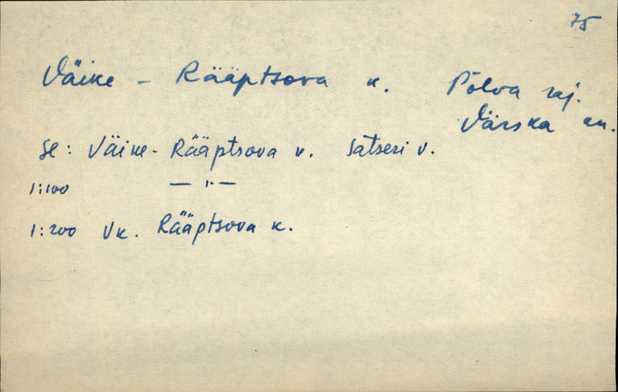 75
Väike - Rääptsova k. Põlva raj.
Värska kn.
Se: Väike-Rääptsova k. Satseri v.
1:100 — " —
1:200 Vk. Rääptsova k.